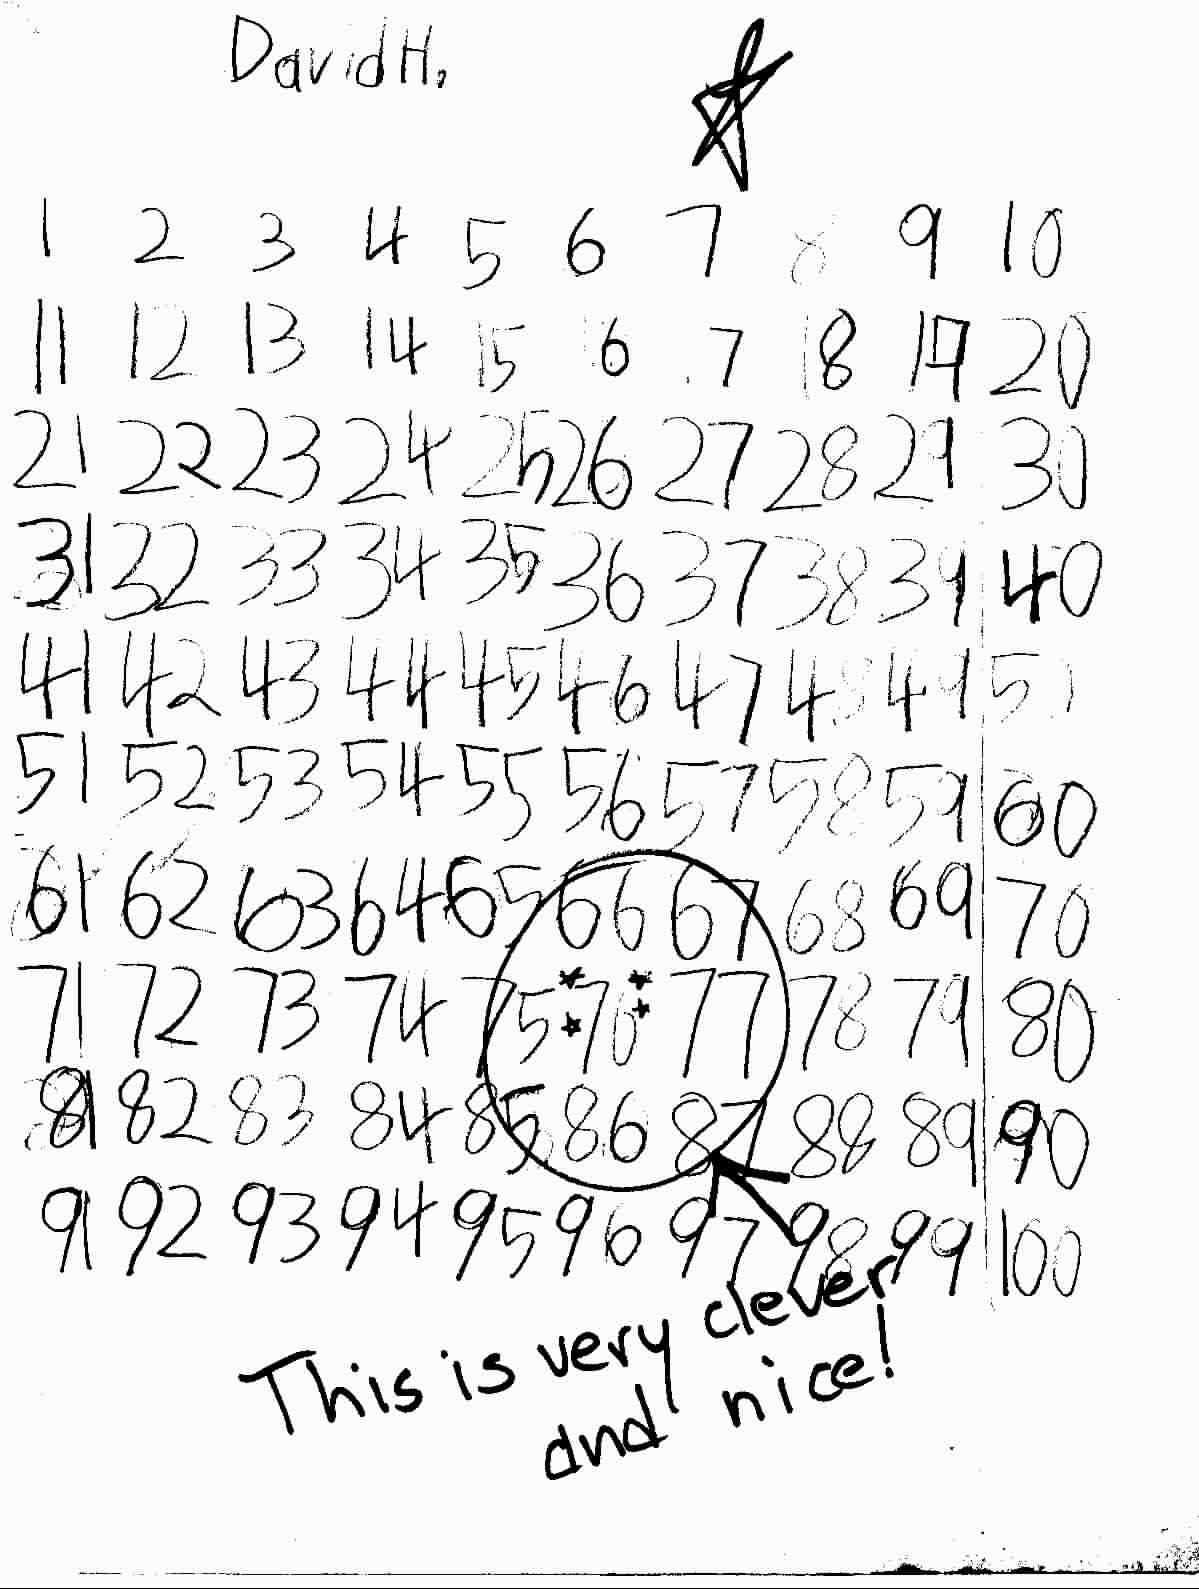 David H.
1 2 3 4 5 6 7 8 9 10
11 12 13 14 15 16 7 18 19 20
21 22 23 24 25 26 27 28 29 30
31 32 33 34 35 36 37 38 39 40
41 42 43 44 45 46 47 48 49 50
51 52 53 54 55 56 57 58 59 60
61 62 63 64 65 66 67 68 69 70
71 72 73 74 75 76 77 78 79 80
81 82 83 84 85 86 87 88 89 90
91 92 93 94 95 96 97 98 99 100
This is very clever
and nice!